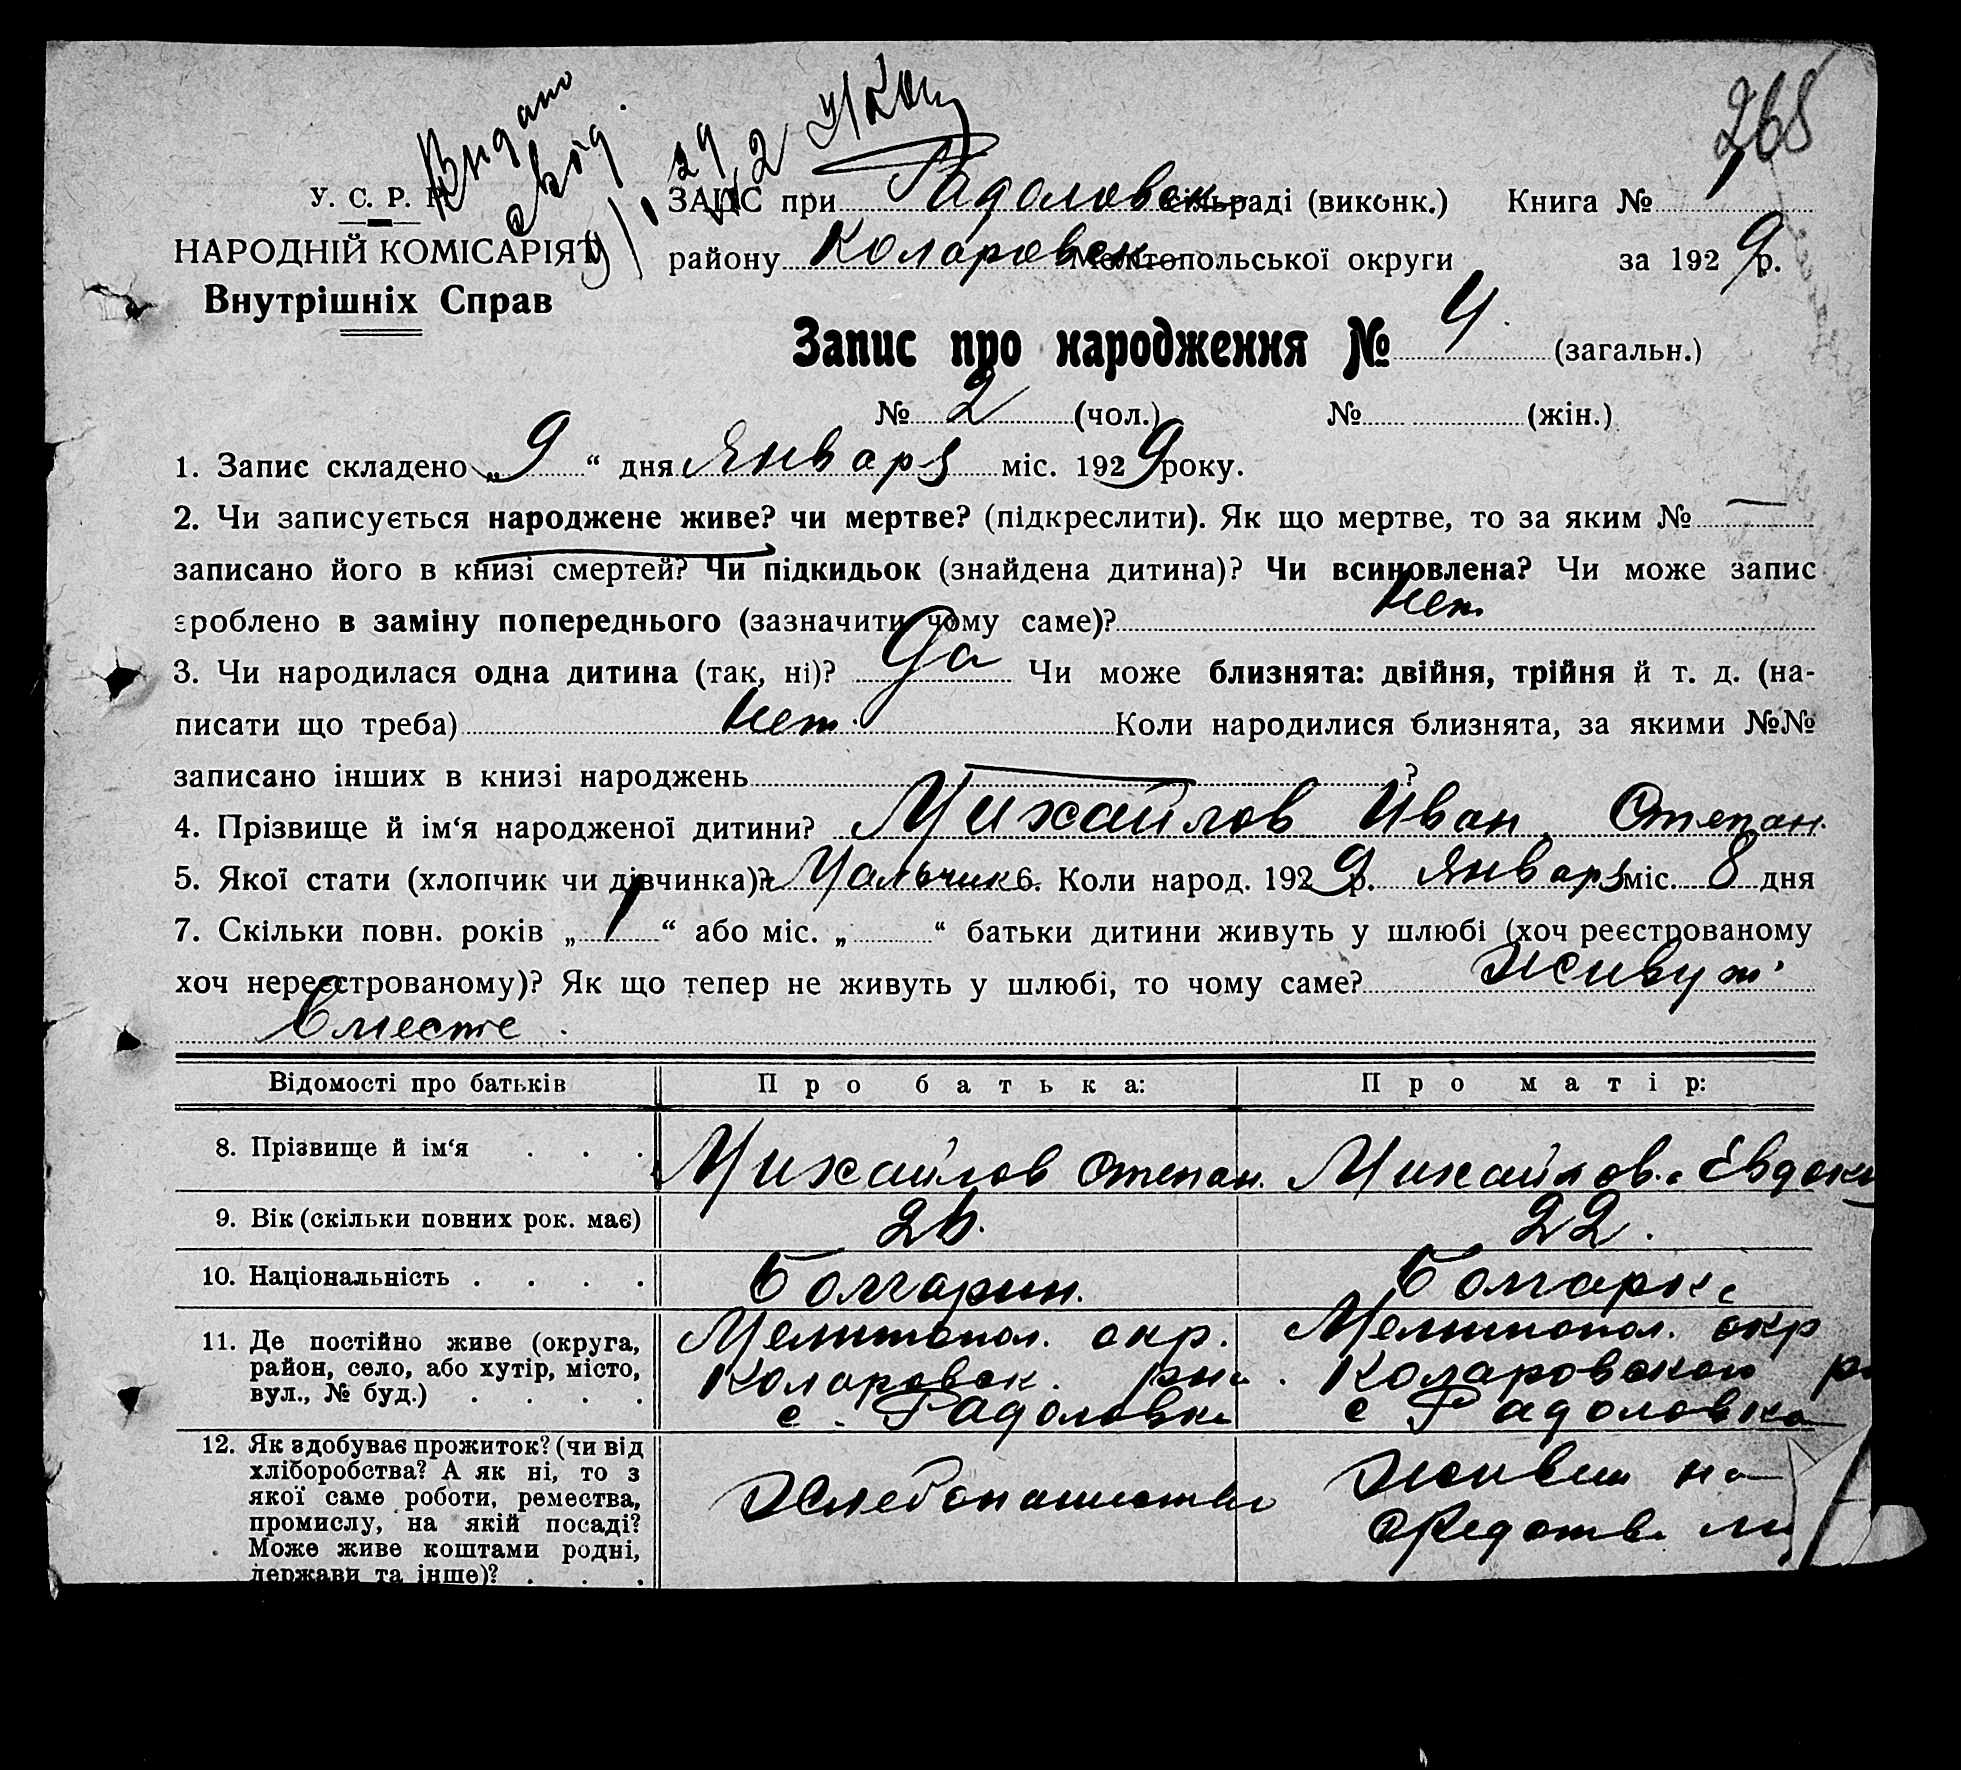 268
Видано
У. С. Р. Р.
НАРОДНІЙ КОМІСАРІЯТ
Внутрішніх Справ
ЗАПИС при Радоловск сільраді (виконк.) Книга № 1
району Коларовск Мелітопольської округи за 1929 р.
Запис про народження № 4 (загальн.)
№ 2 (чол.) № (жін.)
1. Запис складено „9“ дня Января міс. 1929 року.
2. Чи записується народжене живе? чи мертве? (підкреслити). Як що мертве, то за яким № —
записано його в книзі смертей? Чи підкидьок (знайдена дитина)? Чи всиновлена? Чи може запис
зроблено в заміну попереднього (зазначити чому саме)? Нет.
3. Чи народилася одна дитина (так, ні)? Да Чи може близнята: двійня, трійня й т. д. (на-
писати що треба) Нет. Коли народилися близнята, за якими №№
записано інших в книзі народжень — ?
4. Прізвище й ім‘я народженої дитини? Михайлов Иван Степан.
5. Якої стати (хлопчик чи дівчинка)? Мальчик 6. Коли народ. 1929 р. Января міс. 8 дня
7. Скільки повн. років „1“ або міс. „ “ батьки дитини живуть у шлюбі (хоч реєстрованому
хоч нереєстрованому)? Як що тепер не живуть у шлюбі, то чому саме? Живут
Вместе.
Відомості про батьків Про батька: Про матір:
8. Прізвище й ім‘я . . . Михайлов Степан. Михайлов.
9. Вік (скільки повних рок. має) 26. 22.
10. Національність . . . . Болгарин. Болгарка
11. Де постійно живе (округа, Мелитопол. окр. Мелитопол. окр
район, село, або хутір, місто, Коларовск. рна. Коларовского
вул., № буд.) . . . . с. Радоловка с Радоловка
12. Як здобуває прожиток? (чи від
хліборобства? А як ні, то з Живет на
якої саме роботи, ремества, Хлебопашество
промислу, на якій посаді? средства
Може живе коштами родні,
держави та інше)? . . .